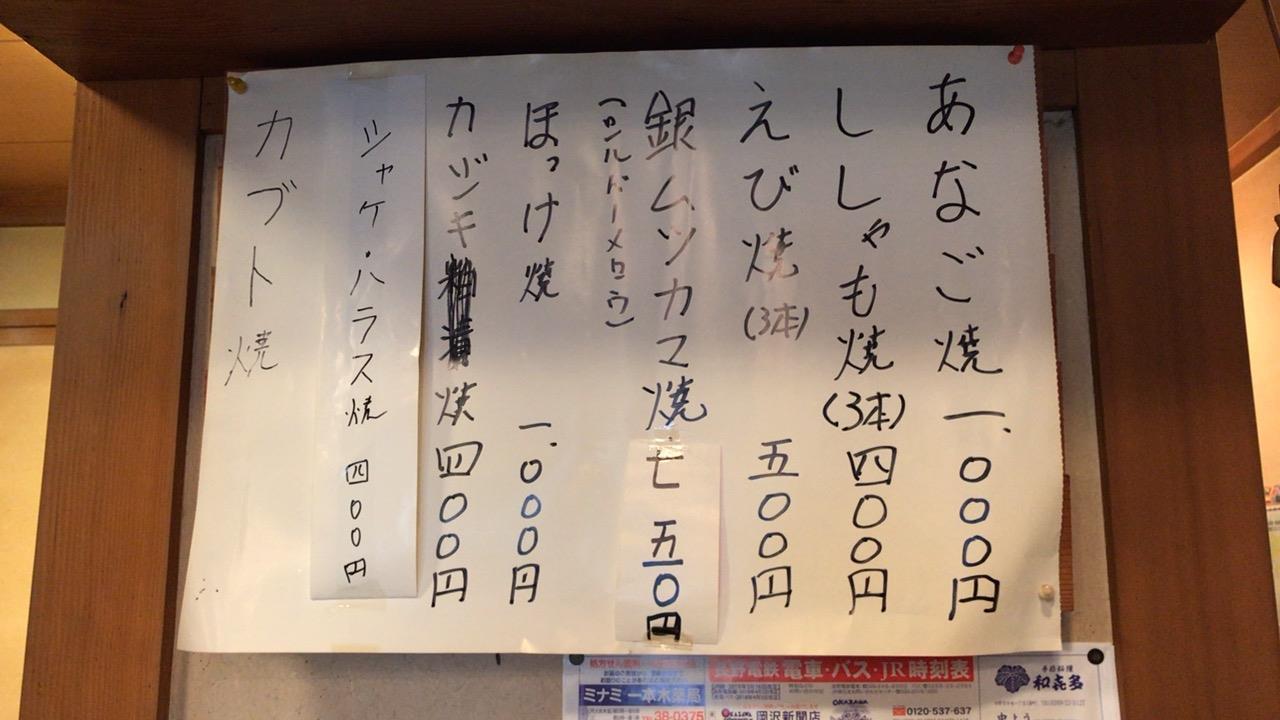 あなご焼 一、〇〇〇円
ししゃも焼(3本) 四〇〇円
えび焼(3本) 五〇〇円
銀ムツカマ焼 七五〇円
ほっけ焼 一、〇〇〇円
カヅキ 焼 四〇〇円
シャケ・ハラス焼 四〇〇円
カブト焼
ミナミ一本木薬局
38-0375
長野電鉄 電車・バス・JR時刻表
岡沢新聞店
0120-537-637
和㐂多